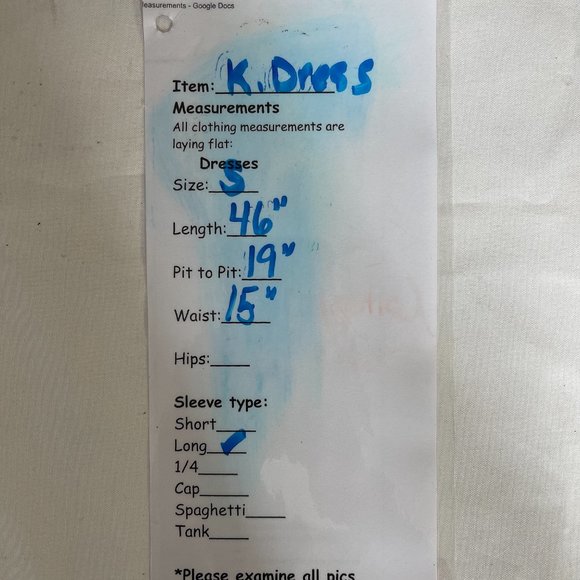 easurements - Google Docs
Item: K. Dress
Measurements
All clothing measurements are
laying flat:
Dresses
Size: S
Length: 46"
Pit to Pit: 19"
Waist: 15"
Hips:____
Sleeve type:
Short____
Long____ ✓
1/4____
Cap_____
Spaghetti____
Tank____
*Please examine all pics